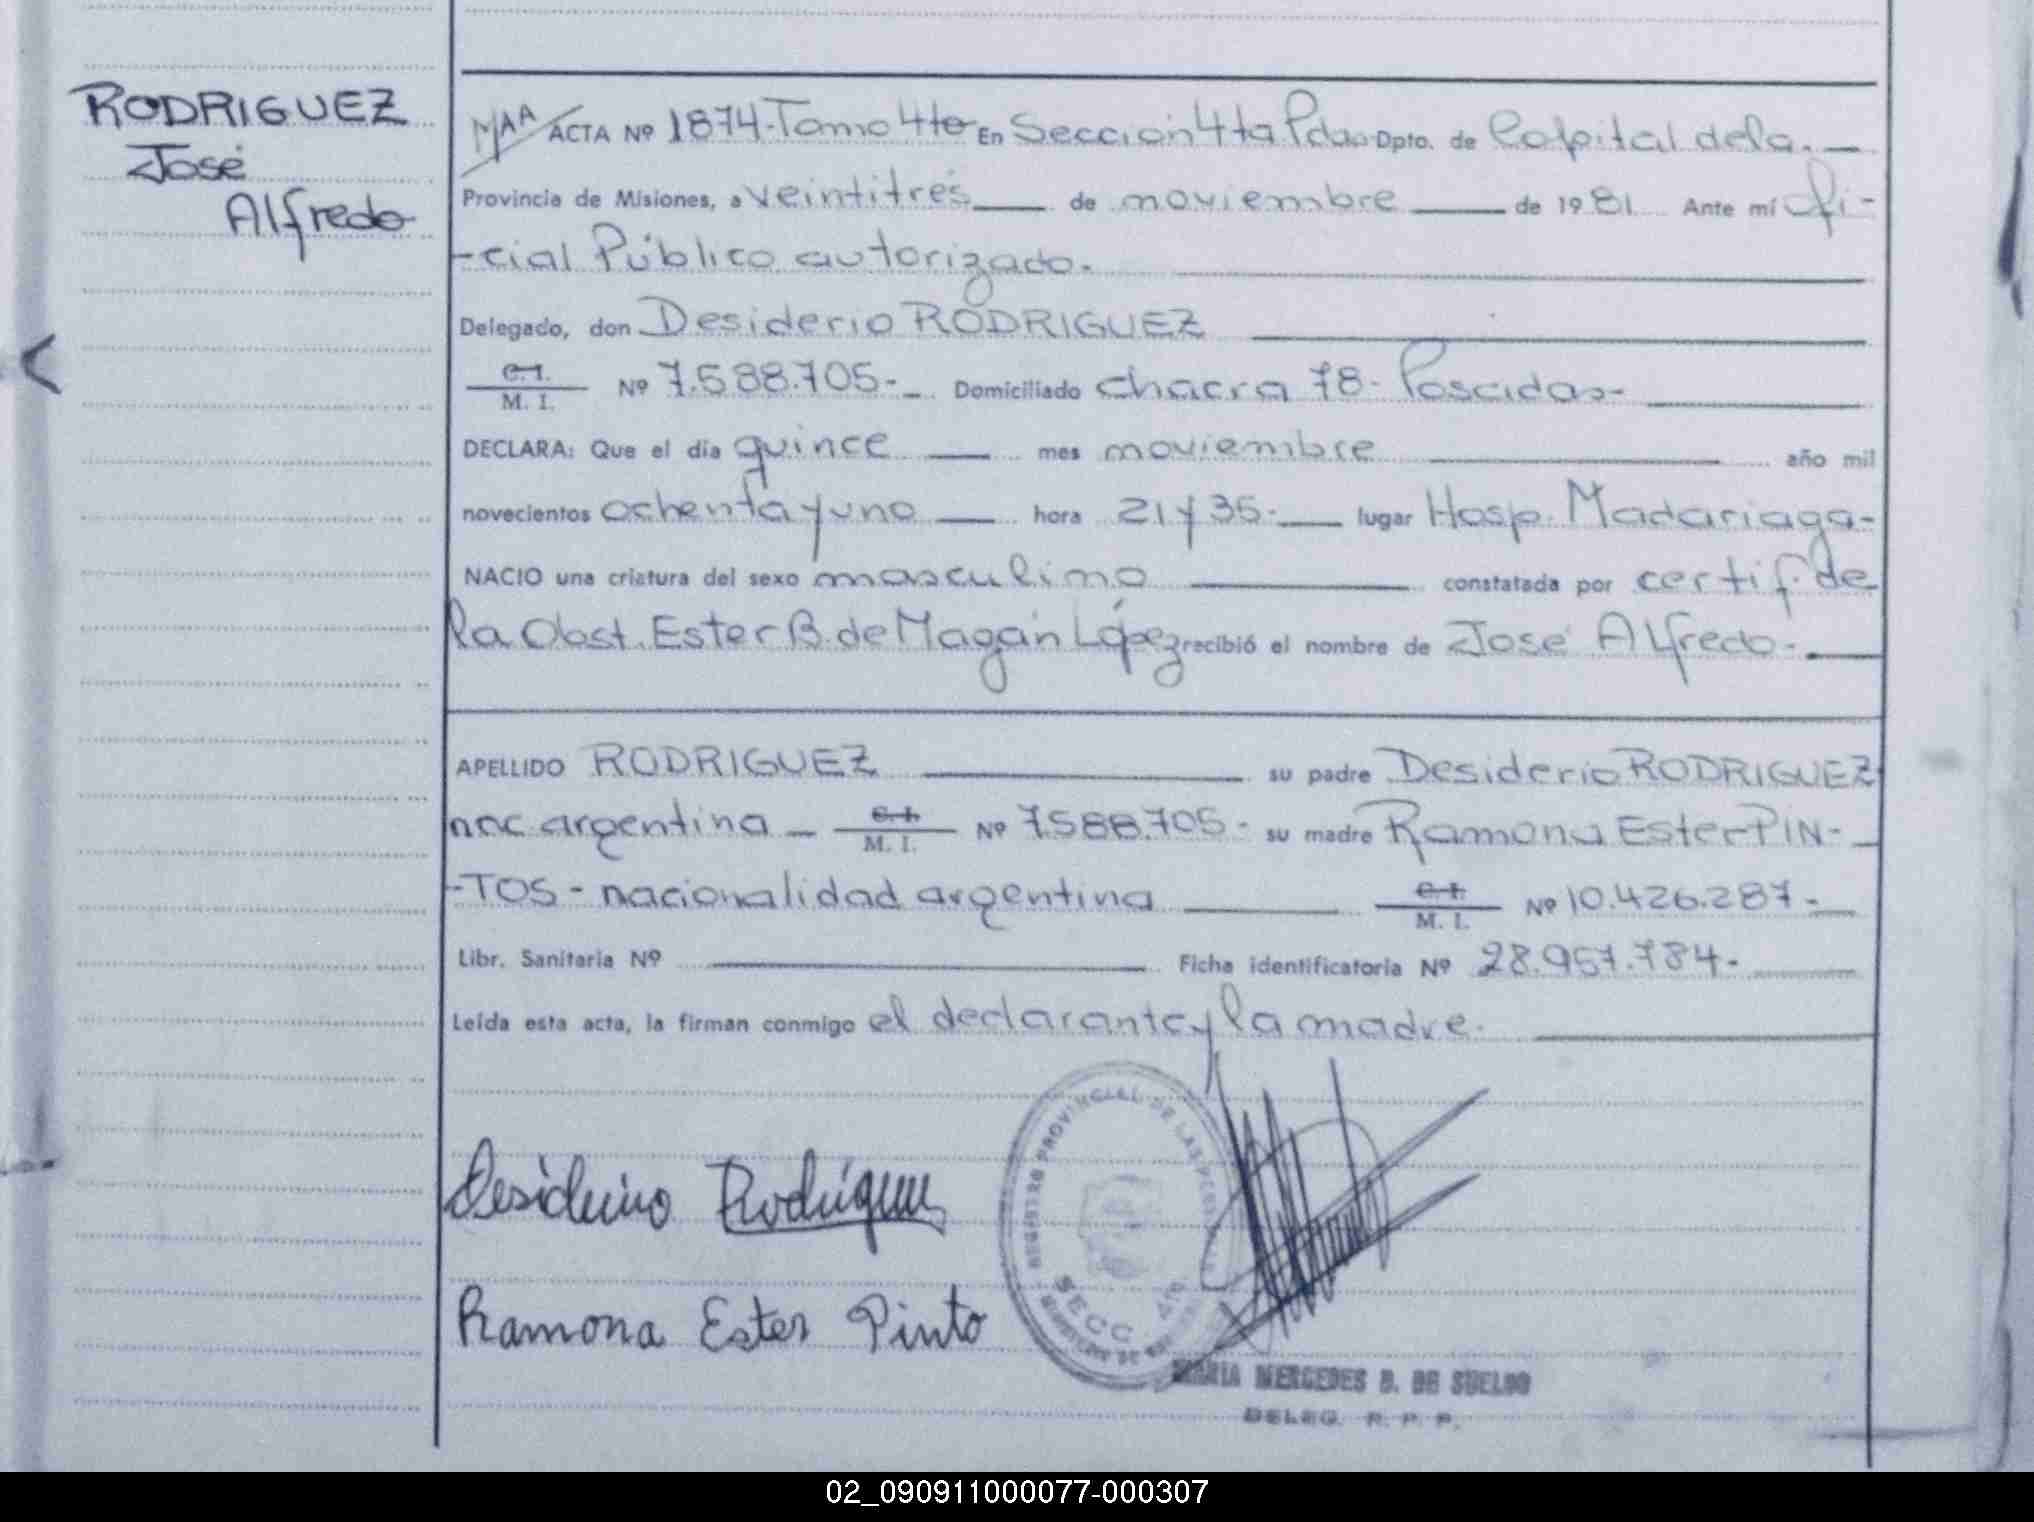 RODRIGUEZ
José
Alfredo
MAA ACTA Nº 1874-Tomo 4to En Sección 4ta Pdas Dpto. de Capital de la.
Provincia de Misiones, a veintitrés de noviembre de 1981. Ante mí Ofi-
-cial Público autorizado.
Delegado, don Desiderio RODRIGUEZ
C.I.
M. I. Nº 7.588.705.- Domiciliado chacra 78- Poscidas-
DECLARA: Que el día quince mes noviembre año mil
novecientos ochenta y uno hora 21 y 35.- lugar Hosp. Madariaga-
NACIO una criatura del sexo masculino constatada por certif. de
la Obst. Ester B. de Magán López recibió el nombre de José Alfredo-.
APELLIDO RODRIGUEZ su padre Desiderio RODRIGUEZ
nac argentina C.I.
M. I. Nº 7.588.705- su madre Ramona Ester PIN-
-TOS- nacionalidad argentina C.I.
M. I. Nº 10.426.287-
Libr. Sanitaria Nº Ficha identificatoria Nº 28.957.784-
Leída esta acta, la firman conmigo el declarante y la madre.
Desiderio Rodriguez
Ramona Ester Pinto
REGISTRO PROVINCIAL DE LAS PERSONAS
SECC. 4ta
MARIA MERCEDES B. DE SUELDO
DELEG. R. P. P.
02_090911000077-000307